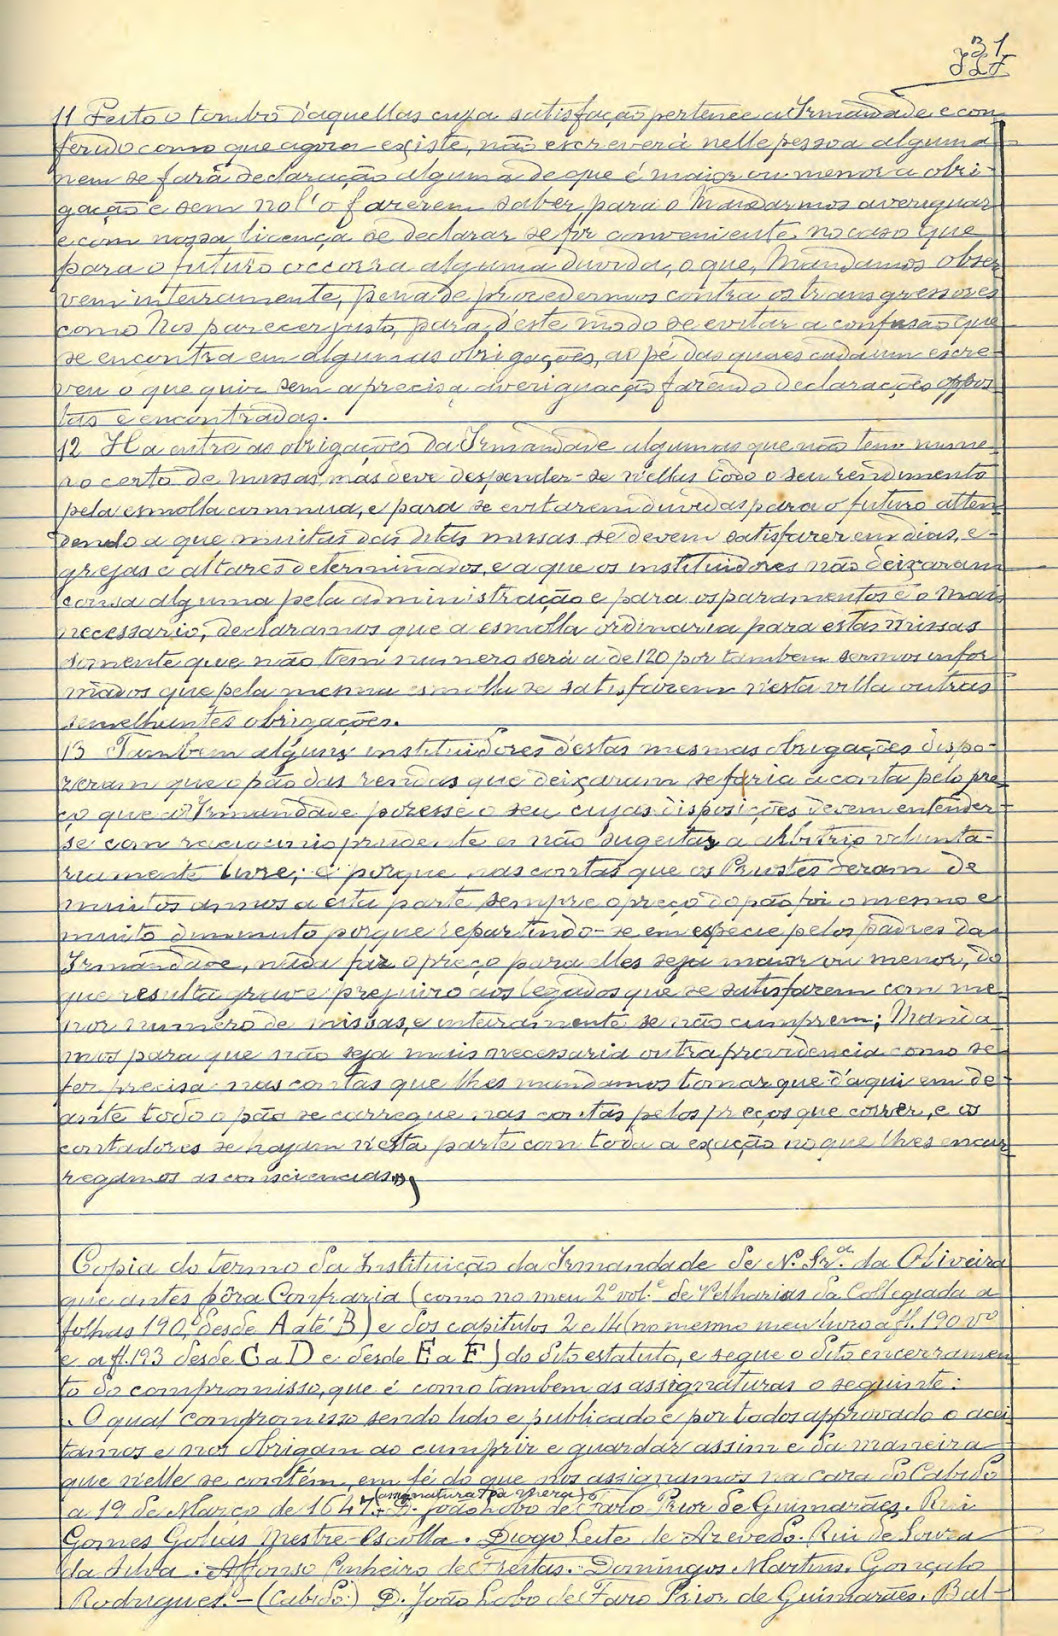 31
11 Feito o tombo d'aquellas cuja satisfação pertence a Irmandade e con
ferido como que agora existe, não escreverá nelle pessoa alguma
nem se fará declaração alguma de que é maior ou menor a obri-
gação e sem nol'o fazerem saber para o Mandarmos averiguar
e com nossa licença se declarar se for conveniente, no caso que
para o futuro occorra alguma duvida, o que, Mandamos obser
vem inteiramente, pena de procedermos contra os transgressores
como Nos parecer justo, para d'este modo se evitar a confusão que
se encontra em algumas obrigações, ao pé das quaes cada um escre-
veu o que quiz sem a precisa averiguação fazendo declarações oppos
tas e encontradas.
12 Ha entre as obrigações da Irmandade algumas que não tem nume-
ro certo de missas, mas deve despender-se n'ellas todo o seu rendimento
pela esmolla commua, e para se evitarem duvidas para o futuro atten
dendo a que muitas das ditas missas se devem satisfazer em dias, e-
grejas e altares determinados, e a que os instituidores não deixaram
cousa alguma pela administração e para os paramentos e o mais
necessario, declaramos que a esmolla ordinaria para estas missas
somente que não tem numero será a de 120 por tambem sermos infor
mados que pela mesma esmolla se satisfazem n'esta villa outras
semelhantes obrigações.
13 Tambem alguns instituidores d'estas mesmas obrigações dispo-
zeram que o pão das rendas que deixaram se faria a conta pelo pre
ço que a Irmandade pozesse o seu cujas disposições devem entender-
se com raciocinio prudente e não sugeitas a arbitrio volunta-
riamente livre; e porque nas contas que os Priostes deram de
muitos annos a esta parte sempre o preço do pão foi o mesmo e
muito diminuto porque repartindo-se em especie pelos padres da
Irmandade, nada faz o preço para elles seja maior ou menor, do
que resulta grave prejuizo aos legados que se satisfazem com me
nor numero de missas, e inteiramente se não cumprem; Manda
mos para que não seja mais necessaria outra providencia como se-
fez precisa nas contas que lhes mandamos tomar que d'aqui em de-
ante todo o pão se carregue nas contas pelos preços que correr, e os
contadores se hajam n'esta parte com toda a exação no que lhes encar
regamos as consciencias.»
Copia do termo da Instituição da Irmandade de N. Sr.ª da Oliveira
que antes fôra Confraria (como no meu 2º vol. de Velharias da Collegiada a
folhas 190, desde A até B) e dos capitulos 2 e 14 (no mesmo meu livro a fl. 190 vº
e a fl. 193 desde C a D e desde E a F) do dito estatuto, e segue o dito encerramen
to do compromisso, que é como tambem as assignaturas o seguinte:
. O qual compromisso sendo lido e publicado e por todos approvado o acei
tamos e nos obrigam ao cumprir e guardar assim e da maneira
que n'elle se contém, em fé do que nos assignamos na casa do Cabido
(assignatura da Meza)
a 19 de Março de 1647. + D. João Lobo de Faro Prior de Guimarães. Rui
Gomes Golias Mestre-Escolla. Diogo Leite de Azevedo. Rui de Souza
da Silva. Affonso Pinheiro de Freitas. Domingos Martins. Gonçalo
Rodrigues.-(Cabido:) D. João Lobo de Faro Prior de Guimarães. Bal-